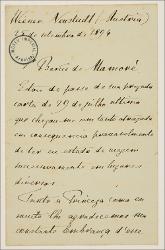 Wiener Neustadt (Austria)
25 de setembro de 1894
Barão de Mamoré
Estou de posse de sua prezada
carta de 19 de julho ultimo
que chegou-me um tanto atrazada
em consequencia provavelmente
de ter eu estado de viagem
successivamente em lugares
diversos.
Tanto a Princeza como eu
muito lhe agradecemos sua
constante lembrança d'esse